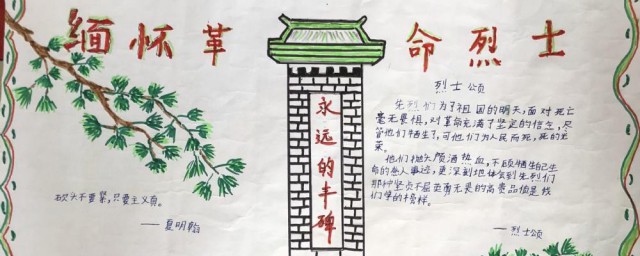 缅怀革命烈士
永远的丰碑
砍头不要紧,只要主义真。
——夏明翰
烈士颂
先烈们为了祖国的明天,面对死亡
毫无畏惧,对革命充满了坚定的信念,尽
管他们牺牲了,可他们为人民而死,死的光
荣。
他们抛头颅洒热血,不顾牺牲自己生
命的感人事迹,更深刻地体会到先烈们
那种坚贞不屈至高无畏的高贵品值是我
们学的榜样。
——烈士颂